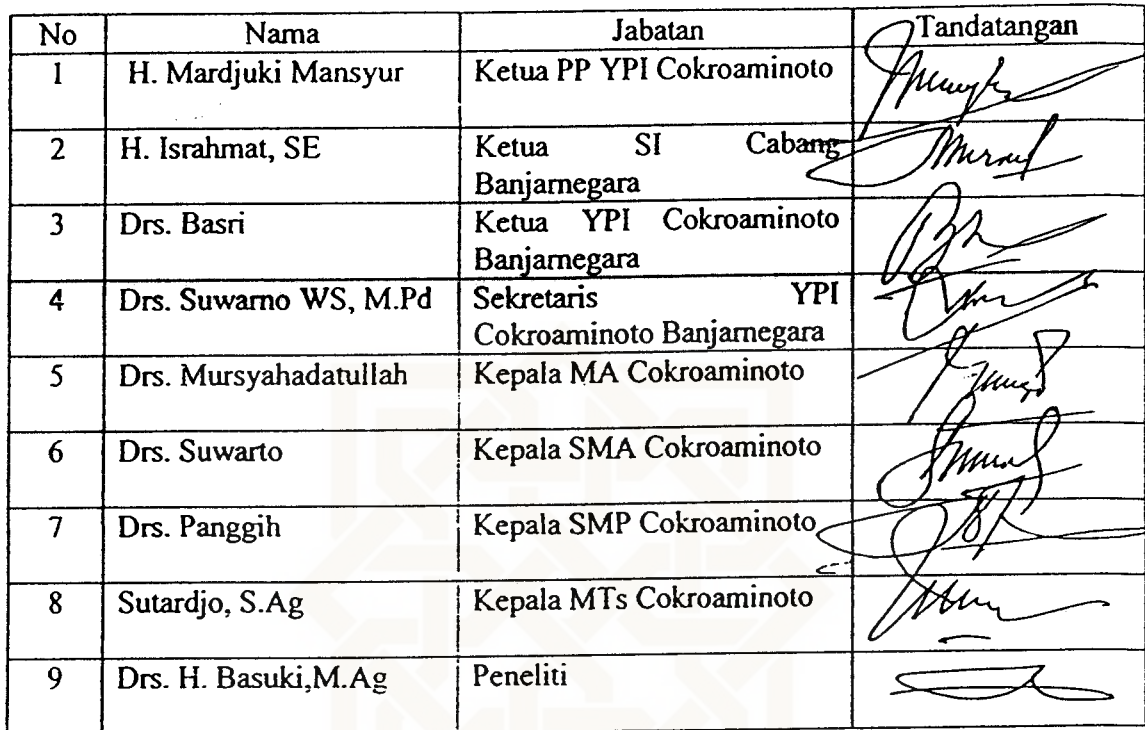 No Nama Jabatan Tandatangan
1 H. Mardjuki Mansyur Ketua PP YPI Cokroaminoto
2 H. Israhmat, SE Ketua SI Cabang
Banjarnegara
3 Drs. Basri Ketua YPI Cokroaminoto
Banjarnegara
4 Drs. Suwarno WS, M.Pd Sekretaris YPI
Cokroaminoto Banjarnegara
5 Drs. Mursyahadatullah Kepala MA Cokroaminoto
6 Drs. Suwarto Kepala SMA Cokroaminoto
7 Drs. Panggih Kepala SMP Cokroaminoto
8 Sutardjo, S.Ag Kepala MTs Cokroaminoto
9 Drs. H. Basuki,M.Ag Peneliti